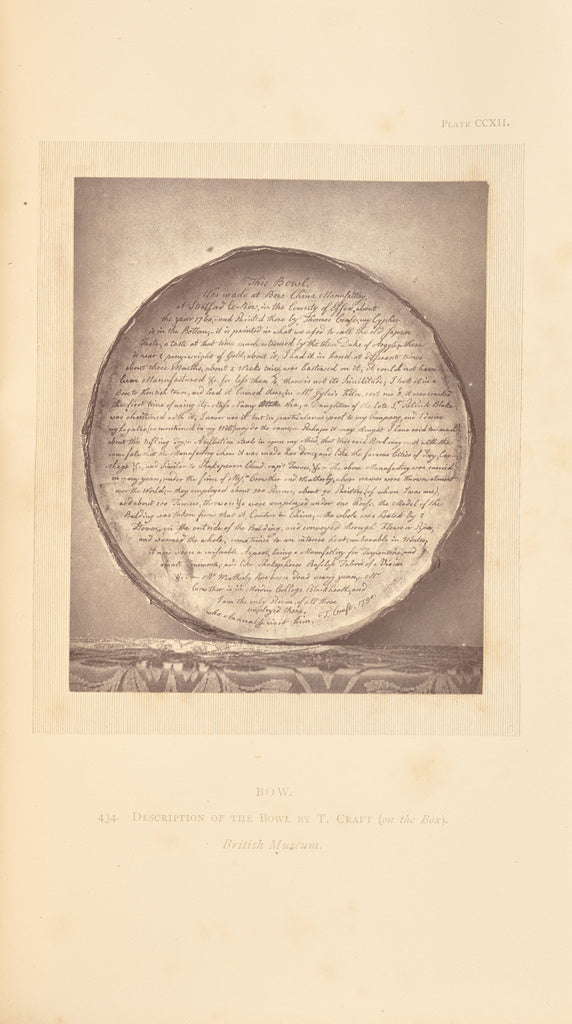 PLATE CCXII.
This Bowl.
Was made at Bow China Manufactory,
at Stratford Le Bow, in the County of Essex, about
the year 1760, and Painted there by Thomas Craft, my Cypher
is in the Bottom; it is painted in what we used to call the old Japan
Taste, a taste at that time much esteemed by the then Duke of Argyle; there
is near 2 penny weight of Gold, about 15s. I had it in hand at different times
about three Months, about 2 Weeks time was bestowed on it, it could not have
been Manufactured &c. for less than £4, there is not its Similitude; I took it in a
Box to Kentish town, and had it burned there in Mr. Gyles's Kiln, cost me 3s. it was cracked
the first time of using it. Miss Fanny a Daughter of the late
was christened with it, I never use it but in particular respect to my Company, and I desire
my Legatee (as mentioned in my Will) may do the same. Perhaps it may be thought I have said too much
about this trifling Toy, A reflection steals in upon my Mind, that this said Bowl may meet with the
same fate that the Manufactory where it was made has done, and like the famous Cities of Troy, Car-
thage &c. and Similar to Shakespears Cloud capt Towers, &c. The above Manufactory was carried
on many years, under the firm of Messrs. Crowther and Weatherby, whose names were known almost
over the World; they employed about 300 Persons, about 90 Painters (of whom I was one),
and about 200 Turners, throwers &c. were employed under one Roof; the Model of the
Building was taken from that at Canton in China; the whole was heated by 2
Stoves, on the outside of the Building, and conveyed through Flews or Pipes,
and warmed the whole, sometimes to an intense heat, unbearable in Winter;
it now wears a miserable Aspect, being a Manufactory for Turpentine, and
small Tenements, and like Shakespheres Baseless Fabric of a Vision
&c. Mr. Weatherby has been dead many years, Mr.
Crowther is in Morden College Blackheath, and
I am the only Person of all those
employed there,
who annually visit him. T. Craft. 1790.
BOW.
434. DESCRIPTION OF THE BOWL BY T. CRAFT (on the Box).
British Museum.